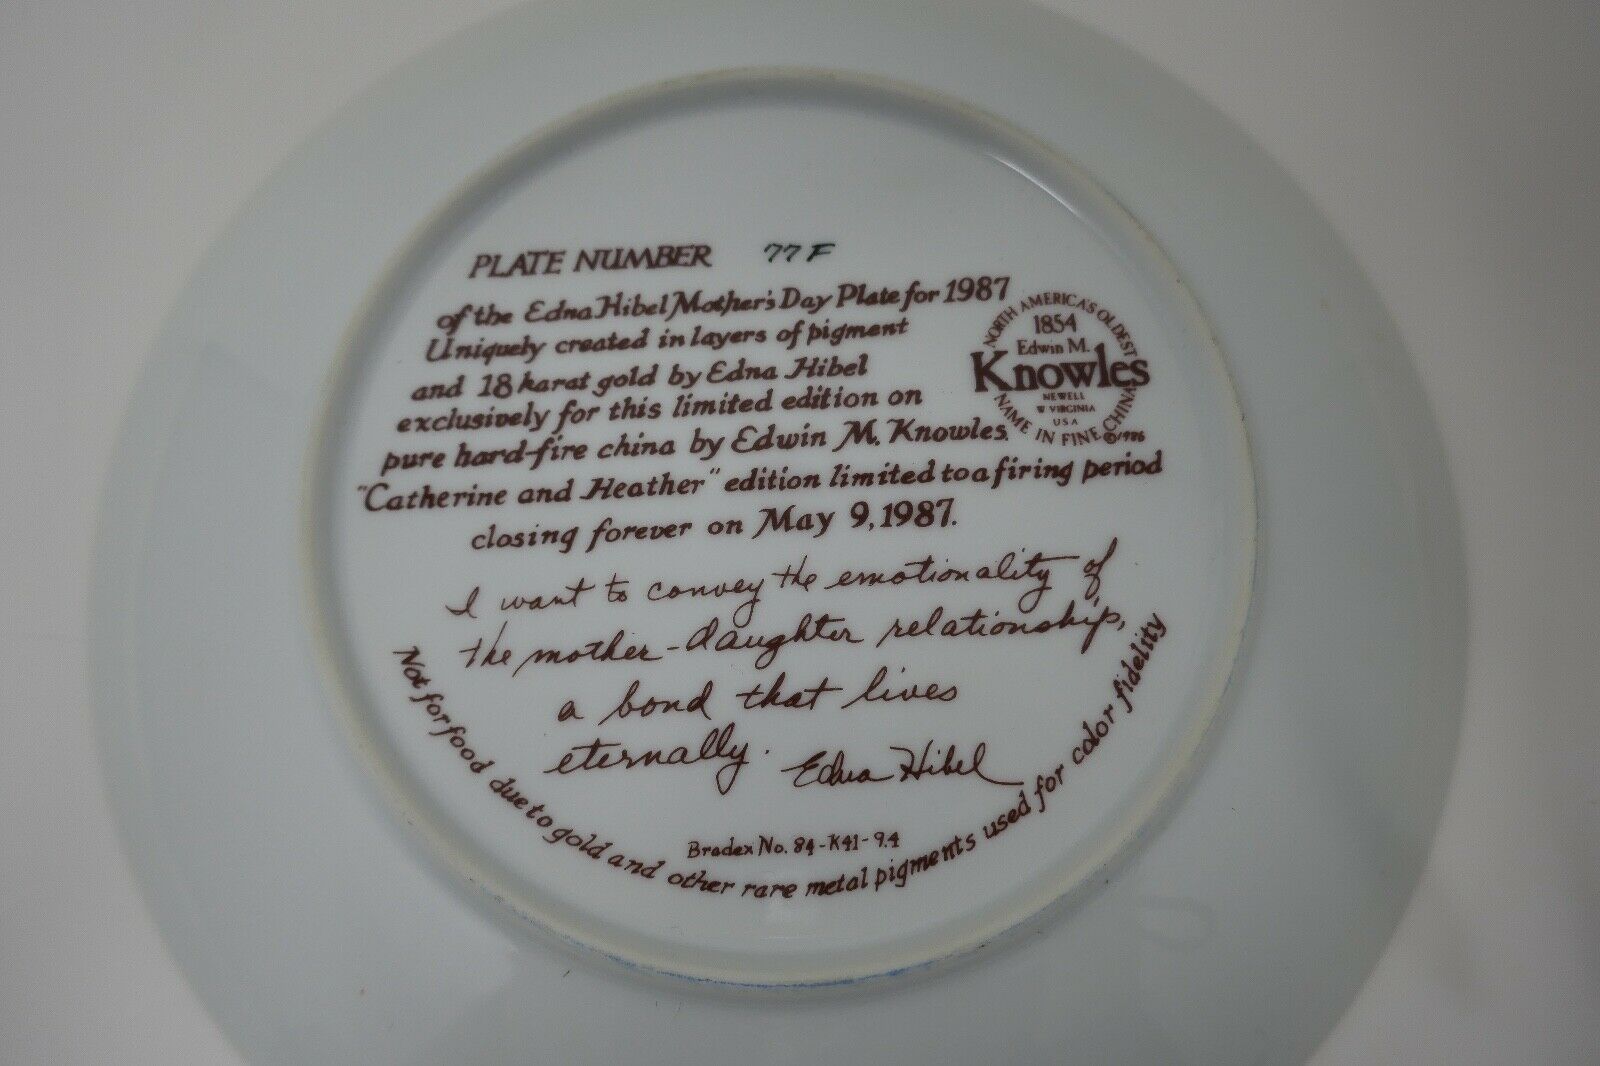 PLATE NUMBER 77F
of the Edna Hibel Mother's Day Plate for 1987
Uniquely created in layers of pigment
and 18 karat gold by Edna Hibel
exclusively for this limited edition on
pure hard-fire china by Edwin M. Knowles.
"Catherine and Heather" edition limited to a firing period
closing forever on May 9, 1987.
NORTH AMERICA'S OLDEST
1854
Edwin M.
Knowles
NEWELL
W VIRGINIA
USA
NAME IN FINE CHINA
©1986
I want to convey the emotionality of
the mother-daughter relationship,
a bond that lives
eternally. Edna Hibel
Bradex No. 84-K41-9.4
Not for food due to gold and other rare metal pigments used for color fidelity